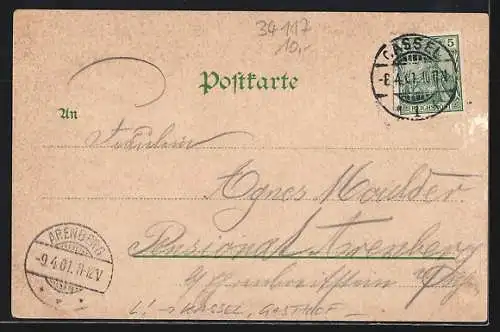 34117
10,-
CASSEL
-8.4.01. 11-12 V.
1
5
Postkarte
An
Fräulein
Agnes Moulder
Pensionat Arenberg
b/Ehrenbreitstein
ARENBERG
-9.4.01. 11-12V
L! → KASSEL, GASTHOF -